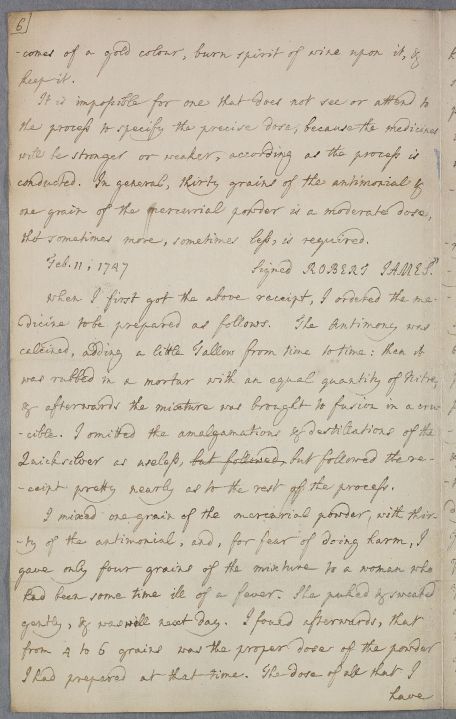 6]
-comes of a gold colour, burn spirit of wine upon it, &
keep it.
It is impossible for one that does not see or attend to
the process to specify the precise dose, because the medicines
will be stronger or weaker, according as the process is
conducted. In general, thirty grains of the antimonial &
one grain of the mercurial powder is a moderate dose,
tho sometimes more, sometimes less, is required.
Feb. 11, 1747 Signed ROBERT JAMES."
When I first got the above receipt, I ordered the me-
dicine to be prepared as follows. The Antimony was
calcined, adding a little Tallow from time to time: then it
was rubbed in a mortar with an equal quantity of Nitre,
& afterwards the mixture was brought to fusion in a cru-
-cible. I omitted the amalgamations & destillations of the
Quicksilver as useless, but followed, but followed the re-
-ceipt pretty nearly as to the rest of the process.
I mixed one grain of the mercurial powder, with thir-
-ty of the antimonial, and, for fear of doing harm, I
gave only four grains of the mixture to a woman who
had been some time ill of a fever. She puked & sweated
gently, & was well next day. I found afterwards, that
from 4 to 6 grains was the proper dose of the powder
I had prepared at that time. The dose of all that I
have